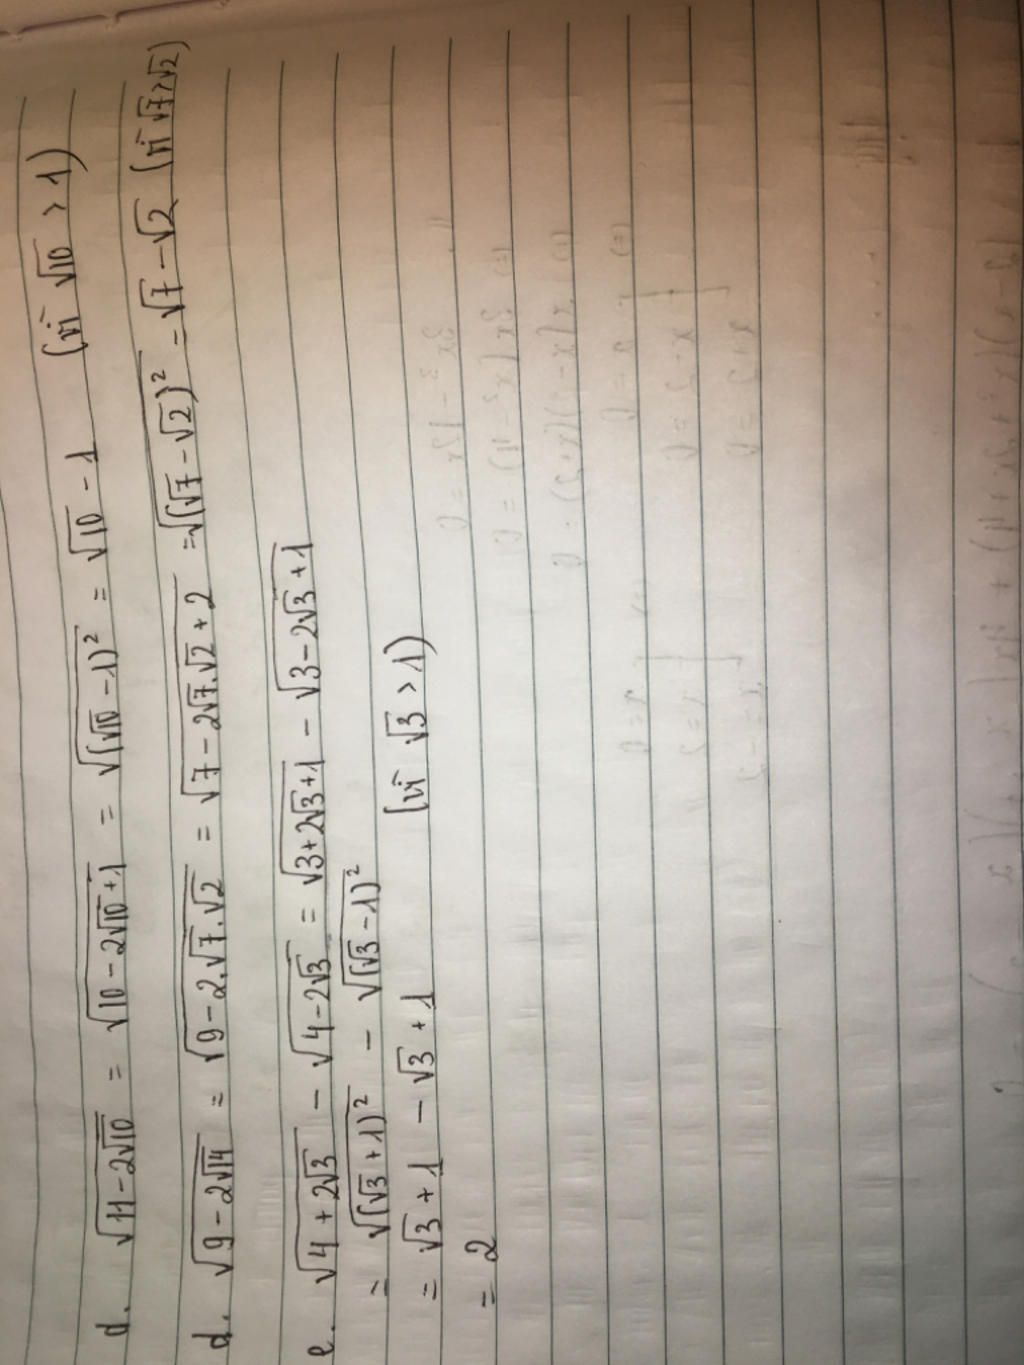 d. √(11-2√10) = √(10-2√10+1) = √((√10-1)²) = √10 - 1 (vì √10 > 1)
d. √(9-2√14) = √(9-2.√7.√2) = √(7-2√7.√2+2) = √((√7-√2)²) = √7-√2 (vì √7>√2)
e. √(4+2√3) - √(4-2√3) = √(3+2√3+1) - √(3-2√3+1)
= √((√3+1)²) - √((√3-1)²)
= √3+1 - √3+1 (vì √3 > 1)
= 2